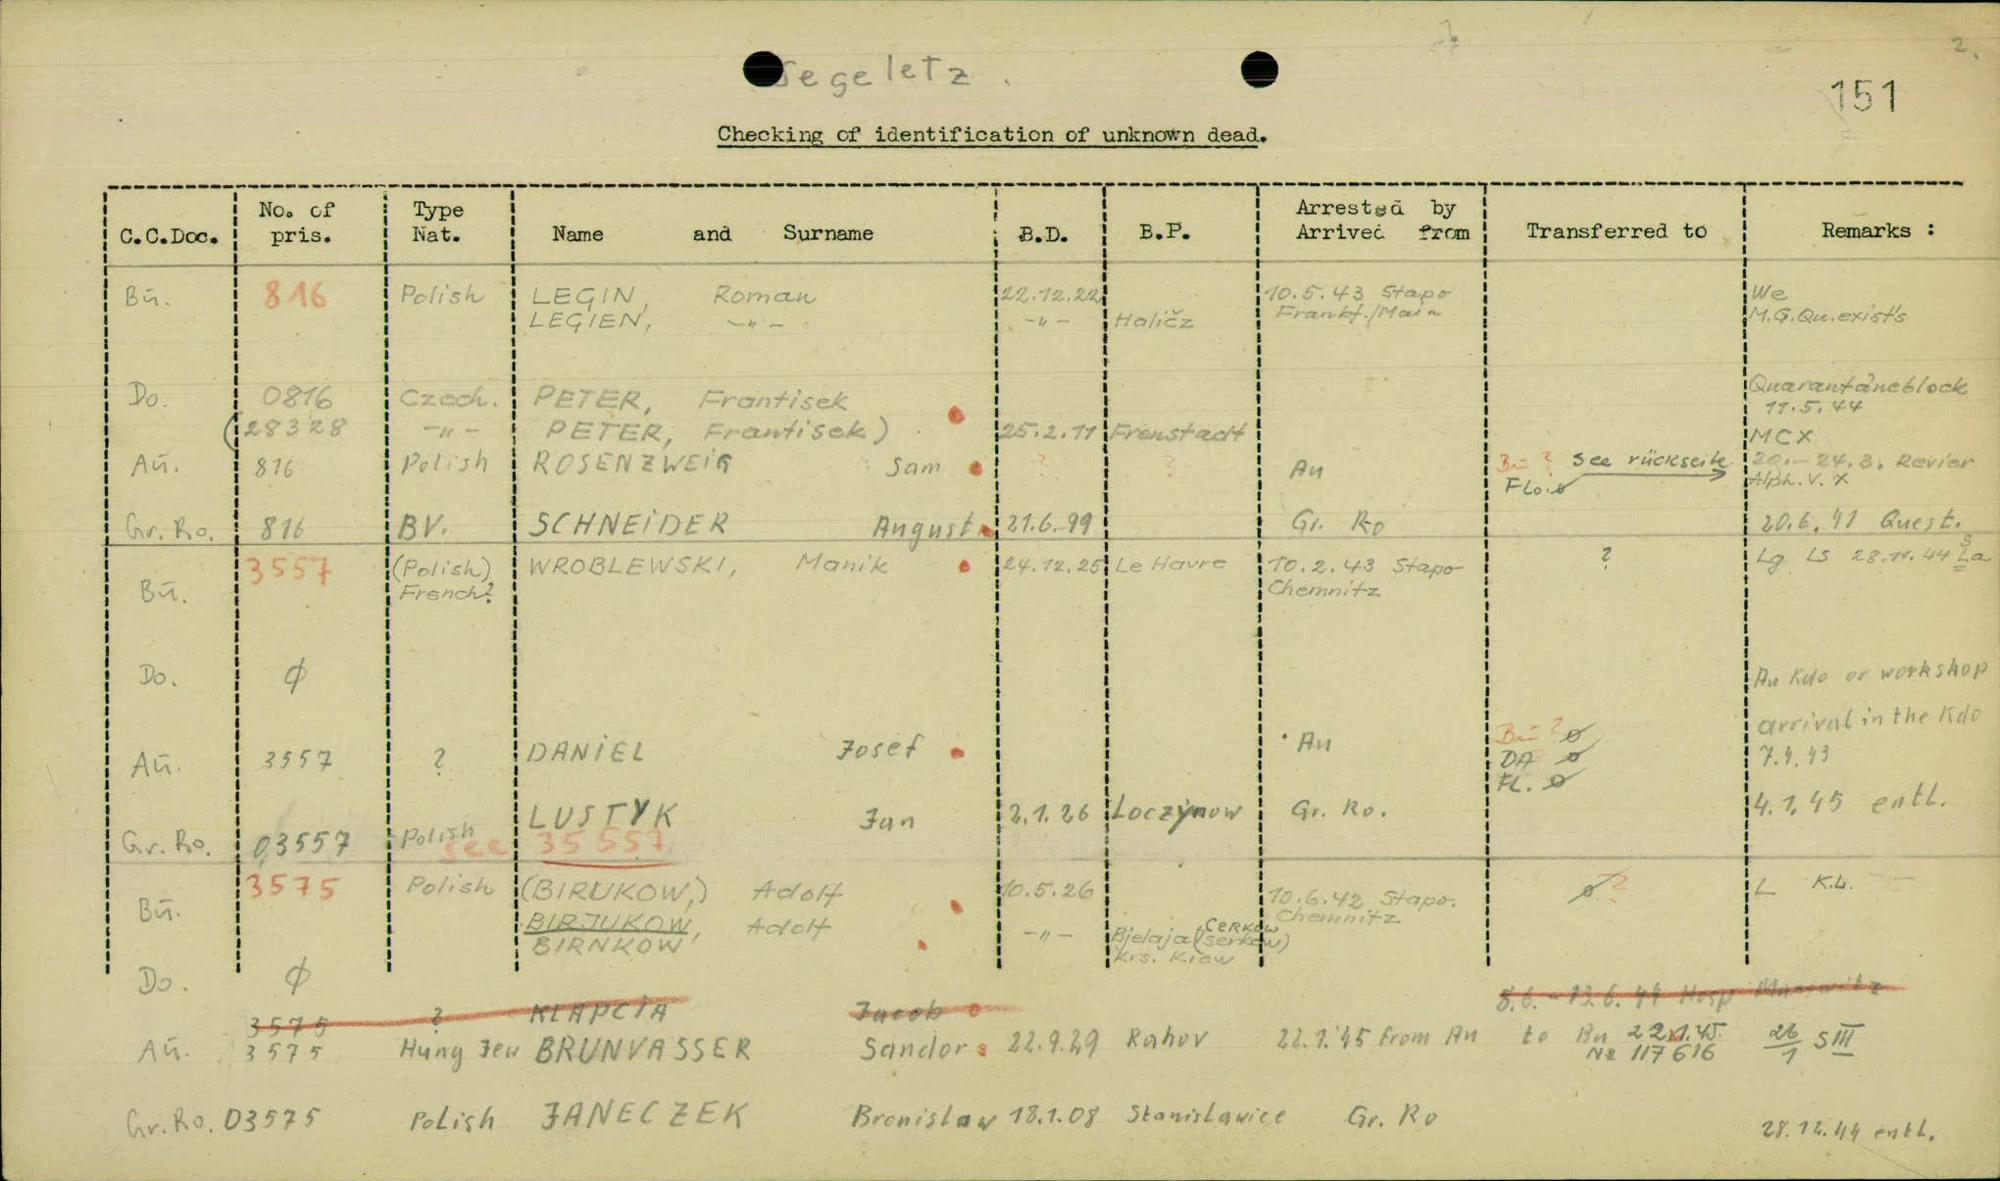 Segeletz.
2.
151
Checking of identification of unknown dead.
C.C.Doc. No. of pris. Type Nat. Name and Surname B.D. B.P. Arrested by Arrived from Transferred to Remarks :
Bū. 816 Polish LEGIN, Roman 22.12.22 10.5.43 Stapo We
LEGIEN, -"- -"- Haličz Frankf./Main M.G.Qu.exists
Do. 0816 Czech. PETER, Frantisek Quarantäneblock
11.5.44
(28328 -"- PETER, Frantisek) 25.2.11 Frenstadt MCX
Aū. 816 Polish ROSENZWEiG Sam ? ? Au Bū ? See rückseite 20.-24.3. Revier
Flo. ø Alph. V. X
Gr. Ro. 816 BV. SCHNEiDER August 21.6.99 Gr. Ro 20.6.41 Quest.
Bū. 3557 (Polish) WROBLEWSKI, Manik 24.12.25 Le Havre 10.2.43 Stapo ? Lg LS 28.11.44 La
French? Chemnitz
Do. ϕ An Kdo or workshop
arrival in the Kdo
Aū. 3557 ? DANiEL Josef Au Bū ? ø 7.4.43
DA ø
FL. ø
Gr. Ro. 03557 Polish LUSTYK Jan 2.1.26 Loczynow Gr. Ro. 4.1.45 entl.
see 35557
Bū. 3575 Polish (BIRUKOW,) Adolf 10.5.26 10.6.42 Stapo. ø ? L K.L.
Chemnitz
BIRJUKOW, Adolf -"- Bjelaja (serkow) CERKOW
BIRNKOW Krs. Kiew
Do. ϕ
3575 ? KLAPCiA Jacob 5.6.-13.6.44 Hosp
Aū. 3575 Hung Jew BRUNVASSER Sandor 22.9.29 Rahov 22.1.45 from Au to Bu 22.1.45. 26/1 SIII
No 117616
Gr. Ro. 03575 Polish JANECZEK Bronislaw 18.1.08 Stanislawice Gr. Ro 28.12.44 entl.